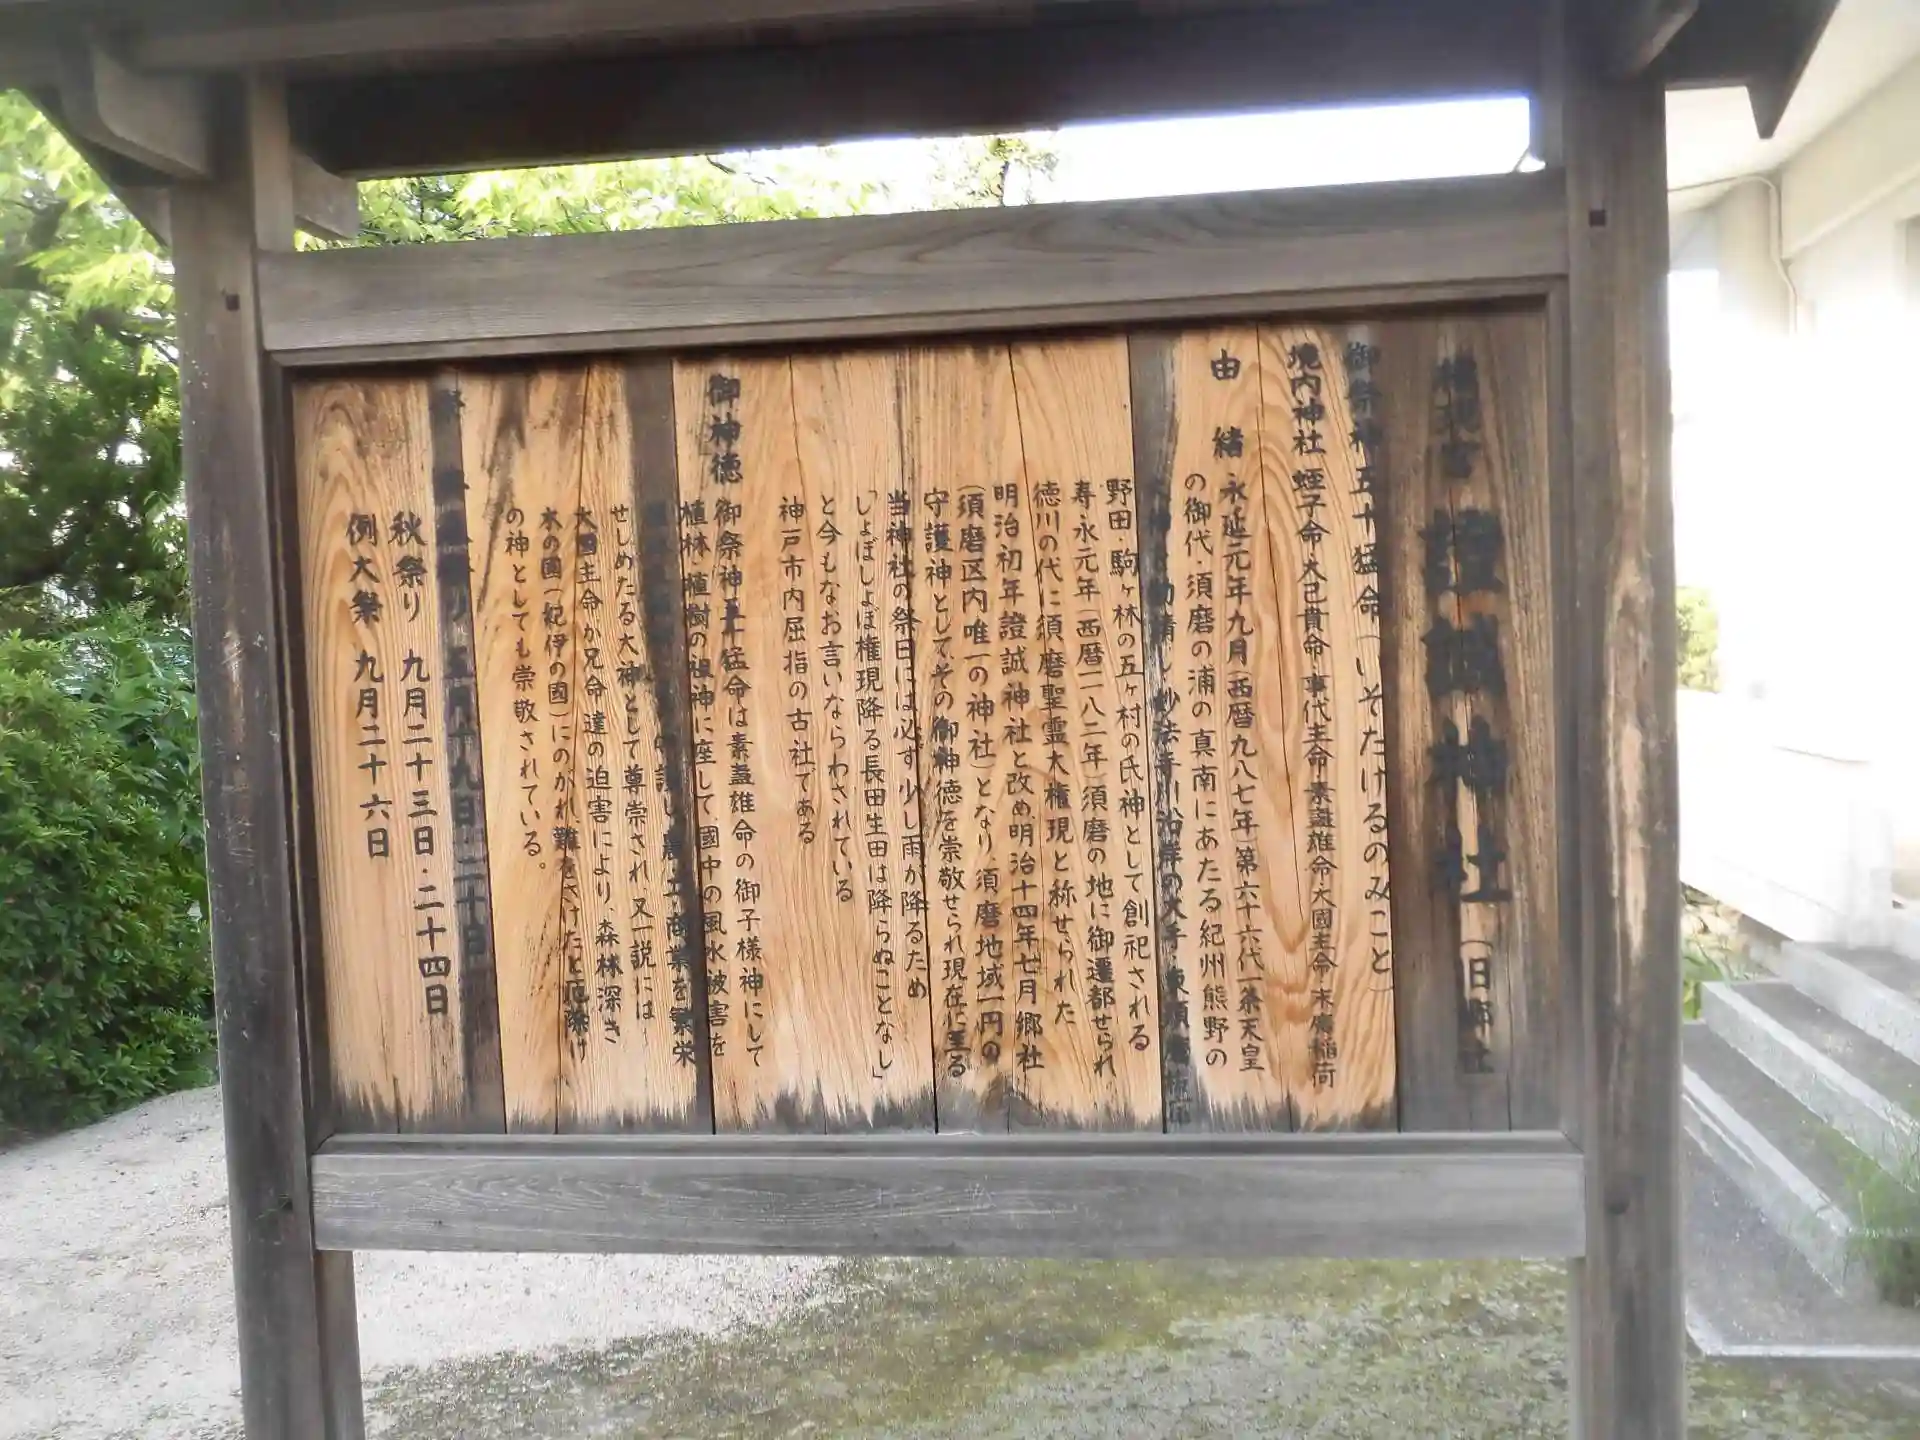 権現宮 證誠神社 (旧郷社)
御祭神 五十猛命(いそたけるのみこと)
境内神社 蛭子命・大己貴命・事代主命・素盞雄命・大國主命・末廣稲荷
由緒 永延元年九月(西暦九八七年)第六十六代一条天皇
の御代・須磨の浦の真南にあたる紀州熊野の
勧請し妙法寺川沿岸の大手・東須磨
野田・駒ヶ林の五ヶ村の氏神として創祀される
寿永元年(西暦一一八二年)須磨の地に御遷都せられ
徳川の代に須磨聖霊大権現と称せられた
明治初年證誠神社と改め、明治十四年七月郷社
(須磨区内唯一の神社)となり、須磨地域一円の
守護神として、その御神徳を崇敬せられ現在に至る
当神社の祭日には必ず少し雨が降るため
「しょぼしょぼ権現降る長田生田は降らぬことなし」
と今もなお言いならわされている
神戸市内屈指の古社である
御神徳 御祭神五十猛命は素盞雄命の御子様神にして
植林・植樹の祖神に座して、國中の風水被害を
農・工・商業を繁栄
せしめたる大神として尊崇され、又一説には
大國主命が兄命達の迫害により、森林深き
木の國(紀伊の國)にのがれ、難をさけたと厄除け
の神としても崇敬されている。
祭 り 五月十九日・二十日
秋祭り 九月二十三日・二十四日
例大祭 九月二十六日